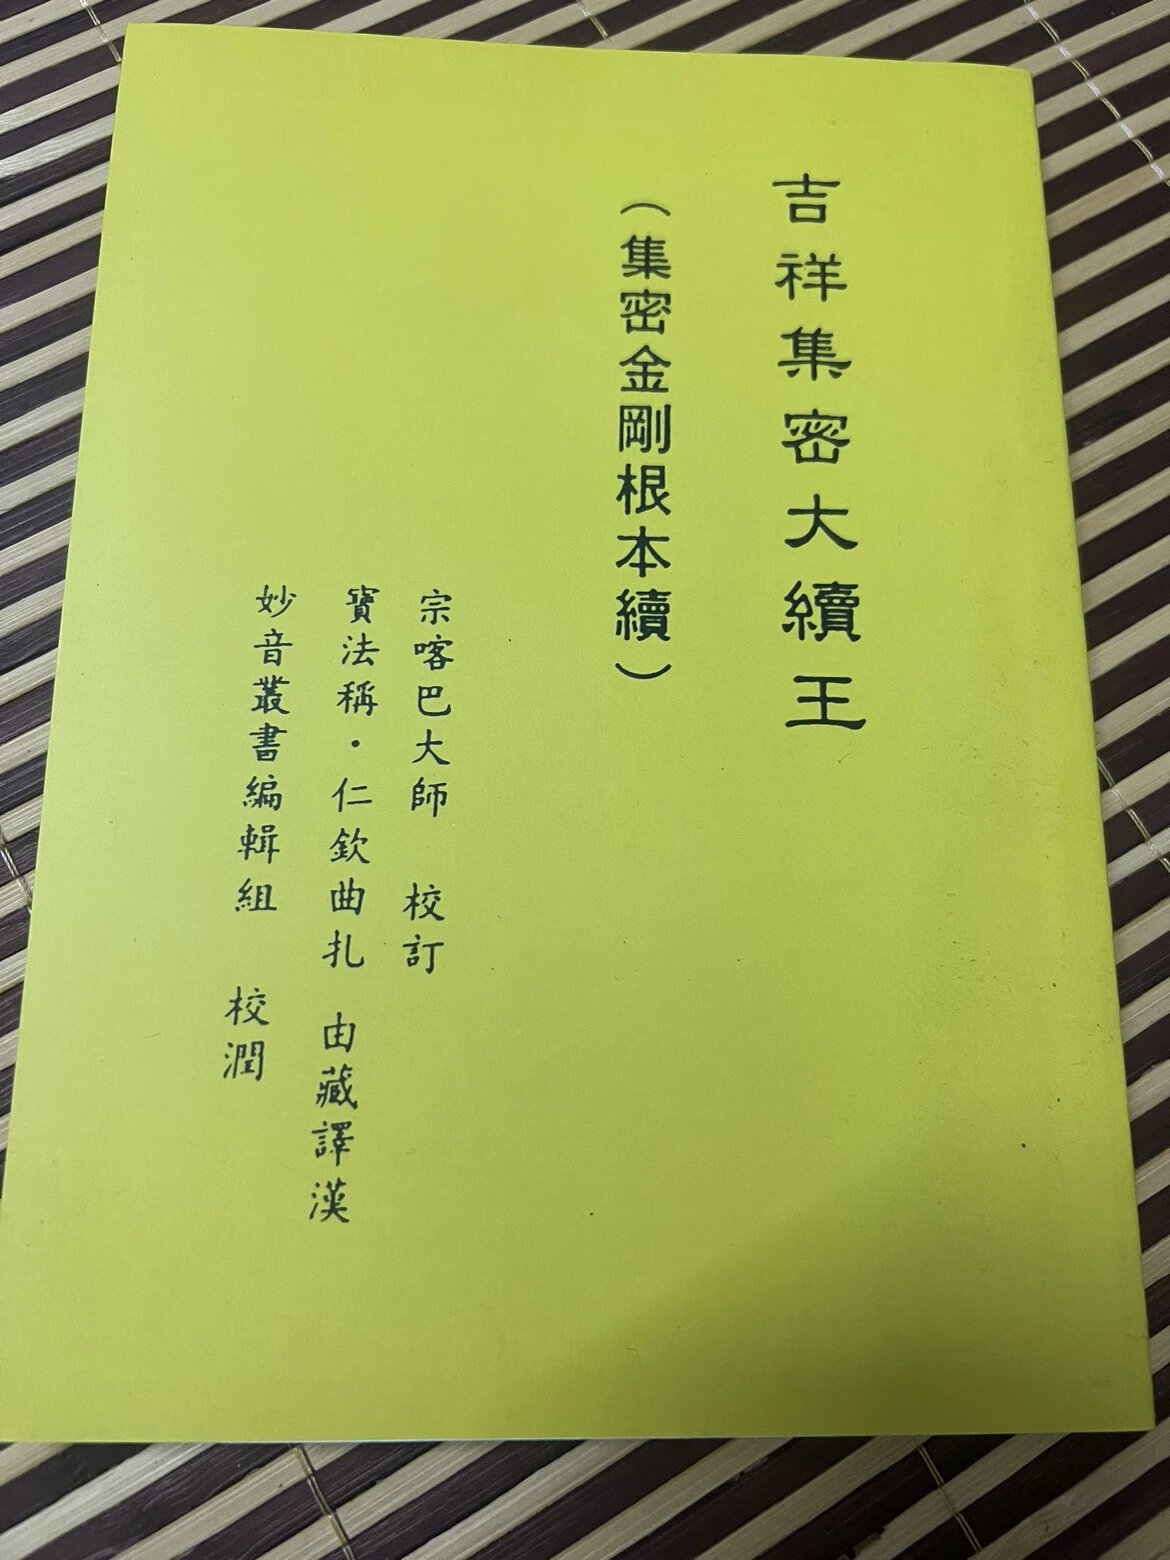 吉祥集密大續王
（集密金剛根本續）
宗喀巴大師　校訂
寶法稱・仁欽曲扎　由藏譯漢
妙音叢書編輯組　校潤